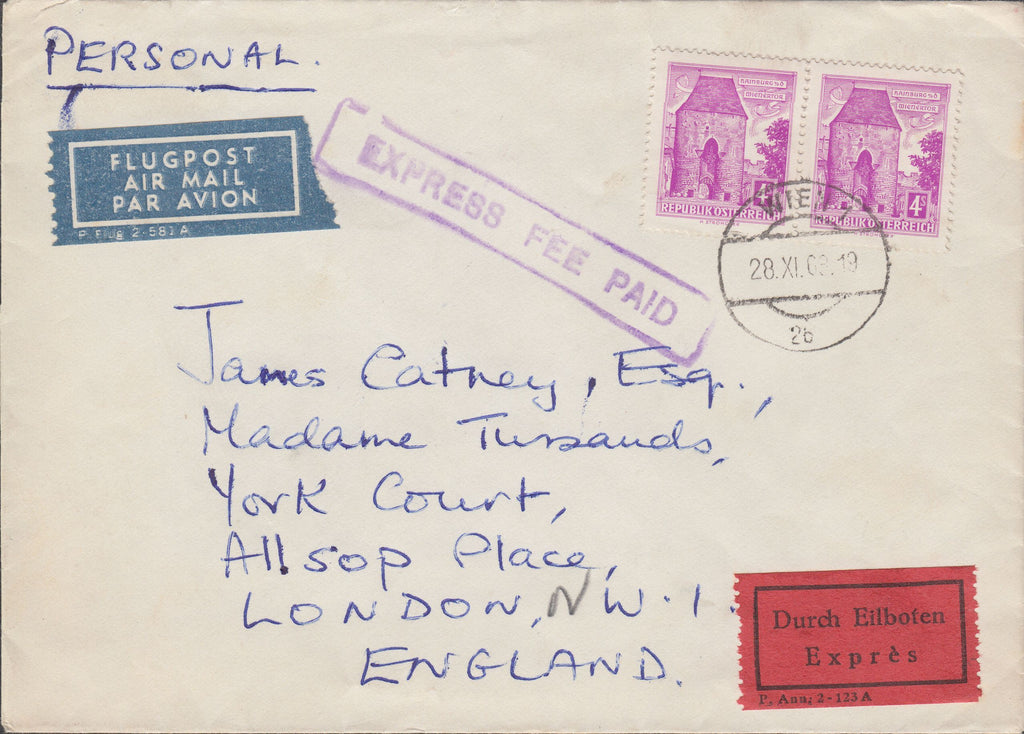 PERSONAL.
FLUGPOST
AIR MAIL
PAR AVION
P. Flug 2-581 A
EXPRESS FEE PAID
HAINBURG a/D
WIENERTOR
REPUBLIK ÖSTERREICH
HAINBURG a/D
WIENERTOR
4S
REPUBLIK ÖSTERREICH
WIEN
28.XI.63.19
2b
James Catney, Esq.,
Madame Tussauds,
York Court,
Allsop Place,
LONDON, NW.1.
ENGLAND.
Durch Eilboten
Exprès
P. Ann; 2-123 A